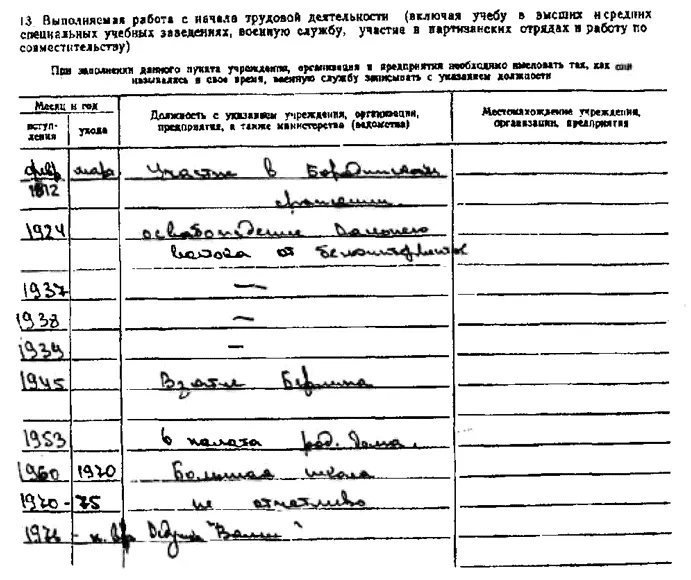 13 Выполняемая работа с начала трудовой деятельности (включая учебу в высших и средних
специальных учебных заведениях, военную службу, участие в партизанских отрядах и работу по
совместительству)
При заполнении данного пункта учреждения, организации и предприятия необходимо именовать так, как они
назывались в свое время, военную службу записывать с указанием должности
Месяц и год
вступ-
ления
ухода
Должность с указанием учреждения, организации,
предприятия, а также министерства (ведомства)
Местонахождение учреждения,
организации, предприятия
февр март Участие в Бородинском
1812 сражении
1924 освобождение Дальнего
востока от белоинтервентов
1937 —
1938 —
1939 —
1945 Взятие Берлина
1953 в палата род. дома.
1960 1970 Большая школа
1970 - 75 не отчетливо
1976 - н. вр "Ваши"